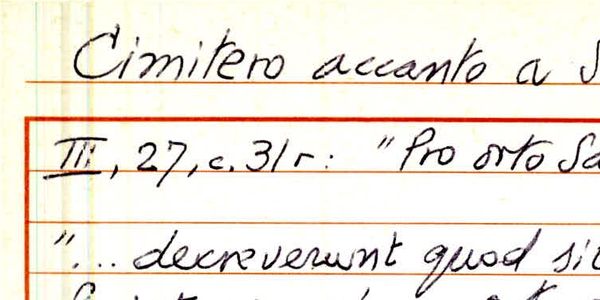 Cimitero accanto a S
III, 27, c. 31r: "Pro orto Sa
"... decreverunt quod sit